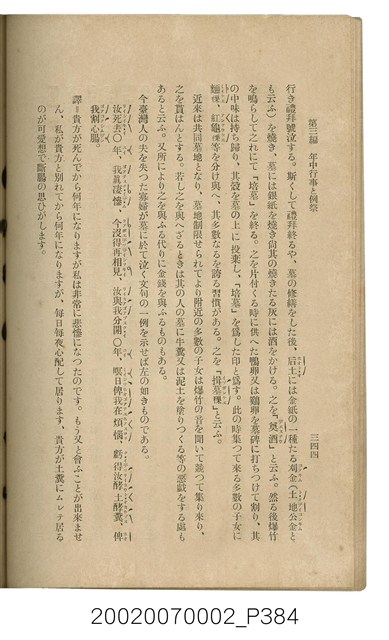 第三編　年中行事と例祭
三四四
行き禮拜號泣する。斯くして禮拜終るや、墓の修繕をした後、后土には金紙の一種たる刈金(土地公金と
も云ふ)を燒き、墓には銀紙を燒き尙其の燒きたる灰には酒をかける。之を「奠酒」と云ふ。然る後爆竹
を鳴らして之れにて「培墓」を終る。之を片付くる時に供へた鴨卵又は鷄卵を墓碑に打ちつけて割り、其
の中味は持ち歸り、其殼を墓の上に投棄し、「培墓」を爲した印と爲す。此の時集つて來る多數の子女に
麵粿、紅龜粿等を分け與へ、其多數なるを誇る習慣がある。之を「揖墓粿」と云ふ。
近來は共同墓地となり、墓地制限せられてより附近の多數の子女は爆竹の音を聞いて競つて集り來り、
之を貰はんとする。若し之を與へざるときは其の人の墓に牛糞又は泥土を塗りつくる等の惡戲をする處も
あると云ふ。又所により之を與ふる代りに金錢を與ふるものもある。
今臺灣人の夫を失つた寡婦が墓に於て泣く文句の一例を示せば左の如きものである。
汝死去〇年、我眞凄慘、今沒得再相見、汝與我分開〇年、暝日俾我在煩惱、虧得汝醉土酵糞、俾
我割心腸。
譯＝貴方が死んでから何年になりますが私は非常に悲慘になつたのです。もう又と會ふことが出來ませ
ん、私が貴方と別れてから何年になりますが、每日每夜心配して居ります、貴方が土糞にムレテ居る
のが可愛想で斷腸の思ひがします。
20020070002_P384